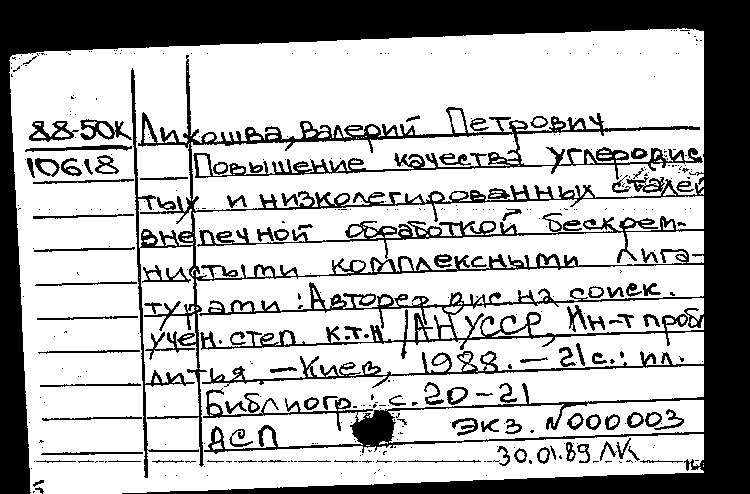 88-50к Лихошва, Валерий Петрович
10618 Повышение качества углеродис
тых и низколегированных сталей
внепечной обработкой бескрем-
нистыми комплексными лига-
турами : Автореф. дис. на соиск.
учен. степ. к.т.н /АН УССР, Ин-т пробл
литья. — Киев, 1988. — 21 с. : ил.
Библиогр.: с. 20-21
АСП экз. N000003
30.01.89 ЛК